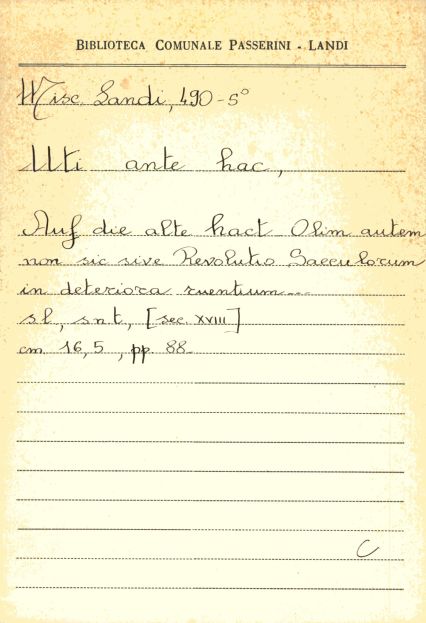 BIBLIOTECA COMUNALE PASSERINI - LANDI
Misc. Landi, 490-5°
Uti ante hac,
Auf die alte hact Olim autem
non sic sive Revolutio Saeculorum
in deteriora ruentium...
s.l., s.n.t., [sec. XVIII]
cm 16,5, pp. 88.
C